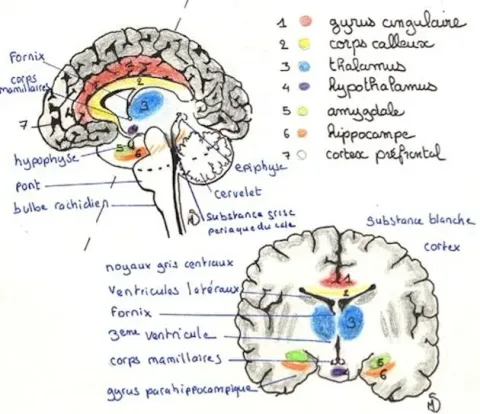 1 gyrus cingulaire
2 corps calleux
3 thalamus
4 hypothalamus
5 amygdale
6 hippocampe
7 cortex préfrontal
Fornix
corps
mamillaires
7
1
2
3
5
6
hypophyse
pont
bulbe rachidien
épiphyse
cervelet
substance grise
periaqueducale
substance blanche
cortex
noyaux gris centraux
ventricules latéraux
fornix
3eme ventricule
corps mamillaires
gyrus parahippocampique
1
2
3
5
6